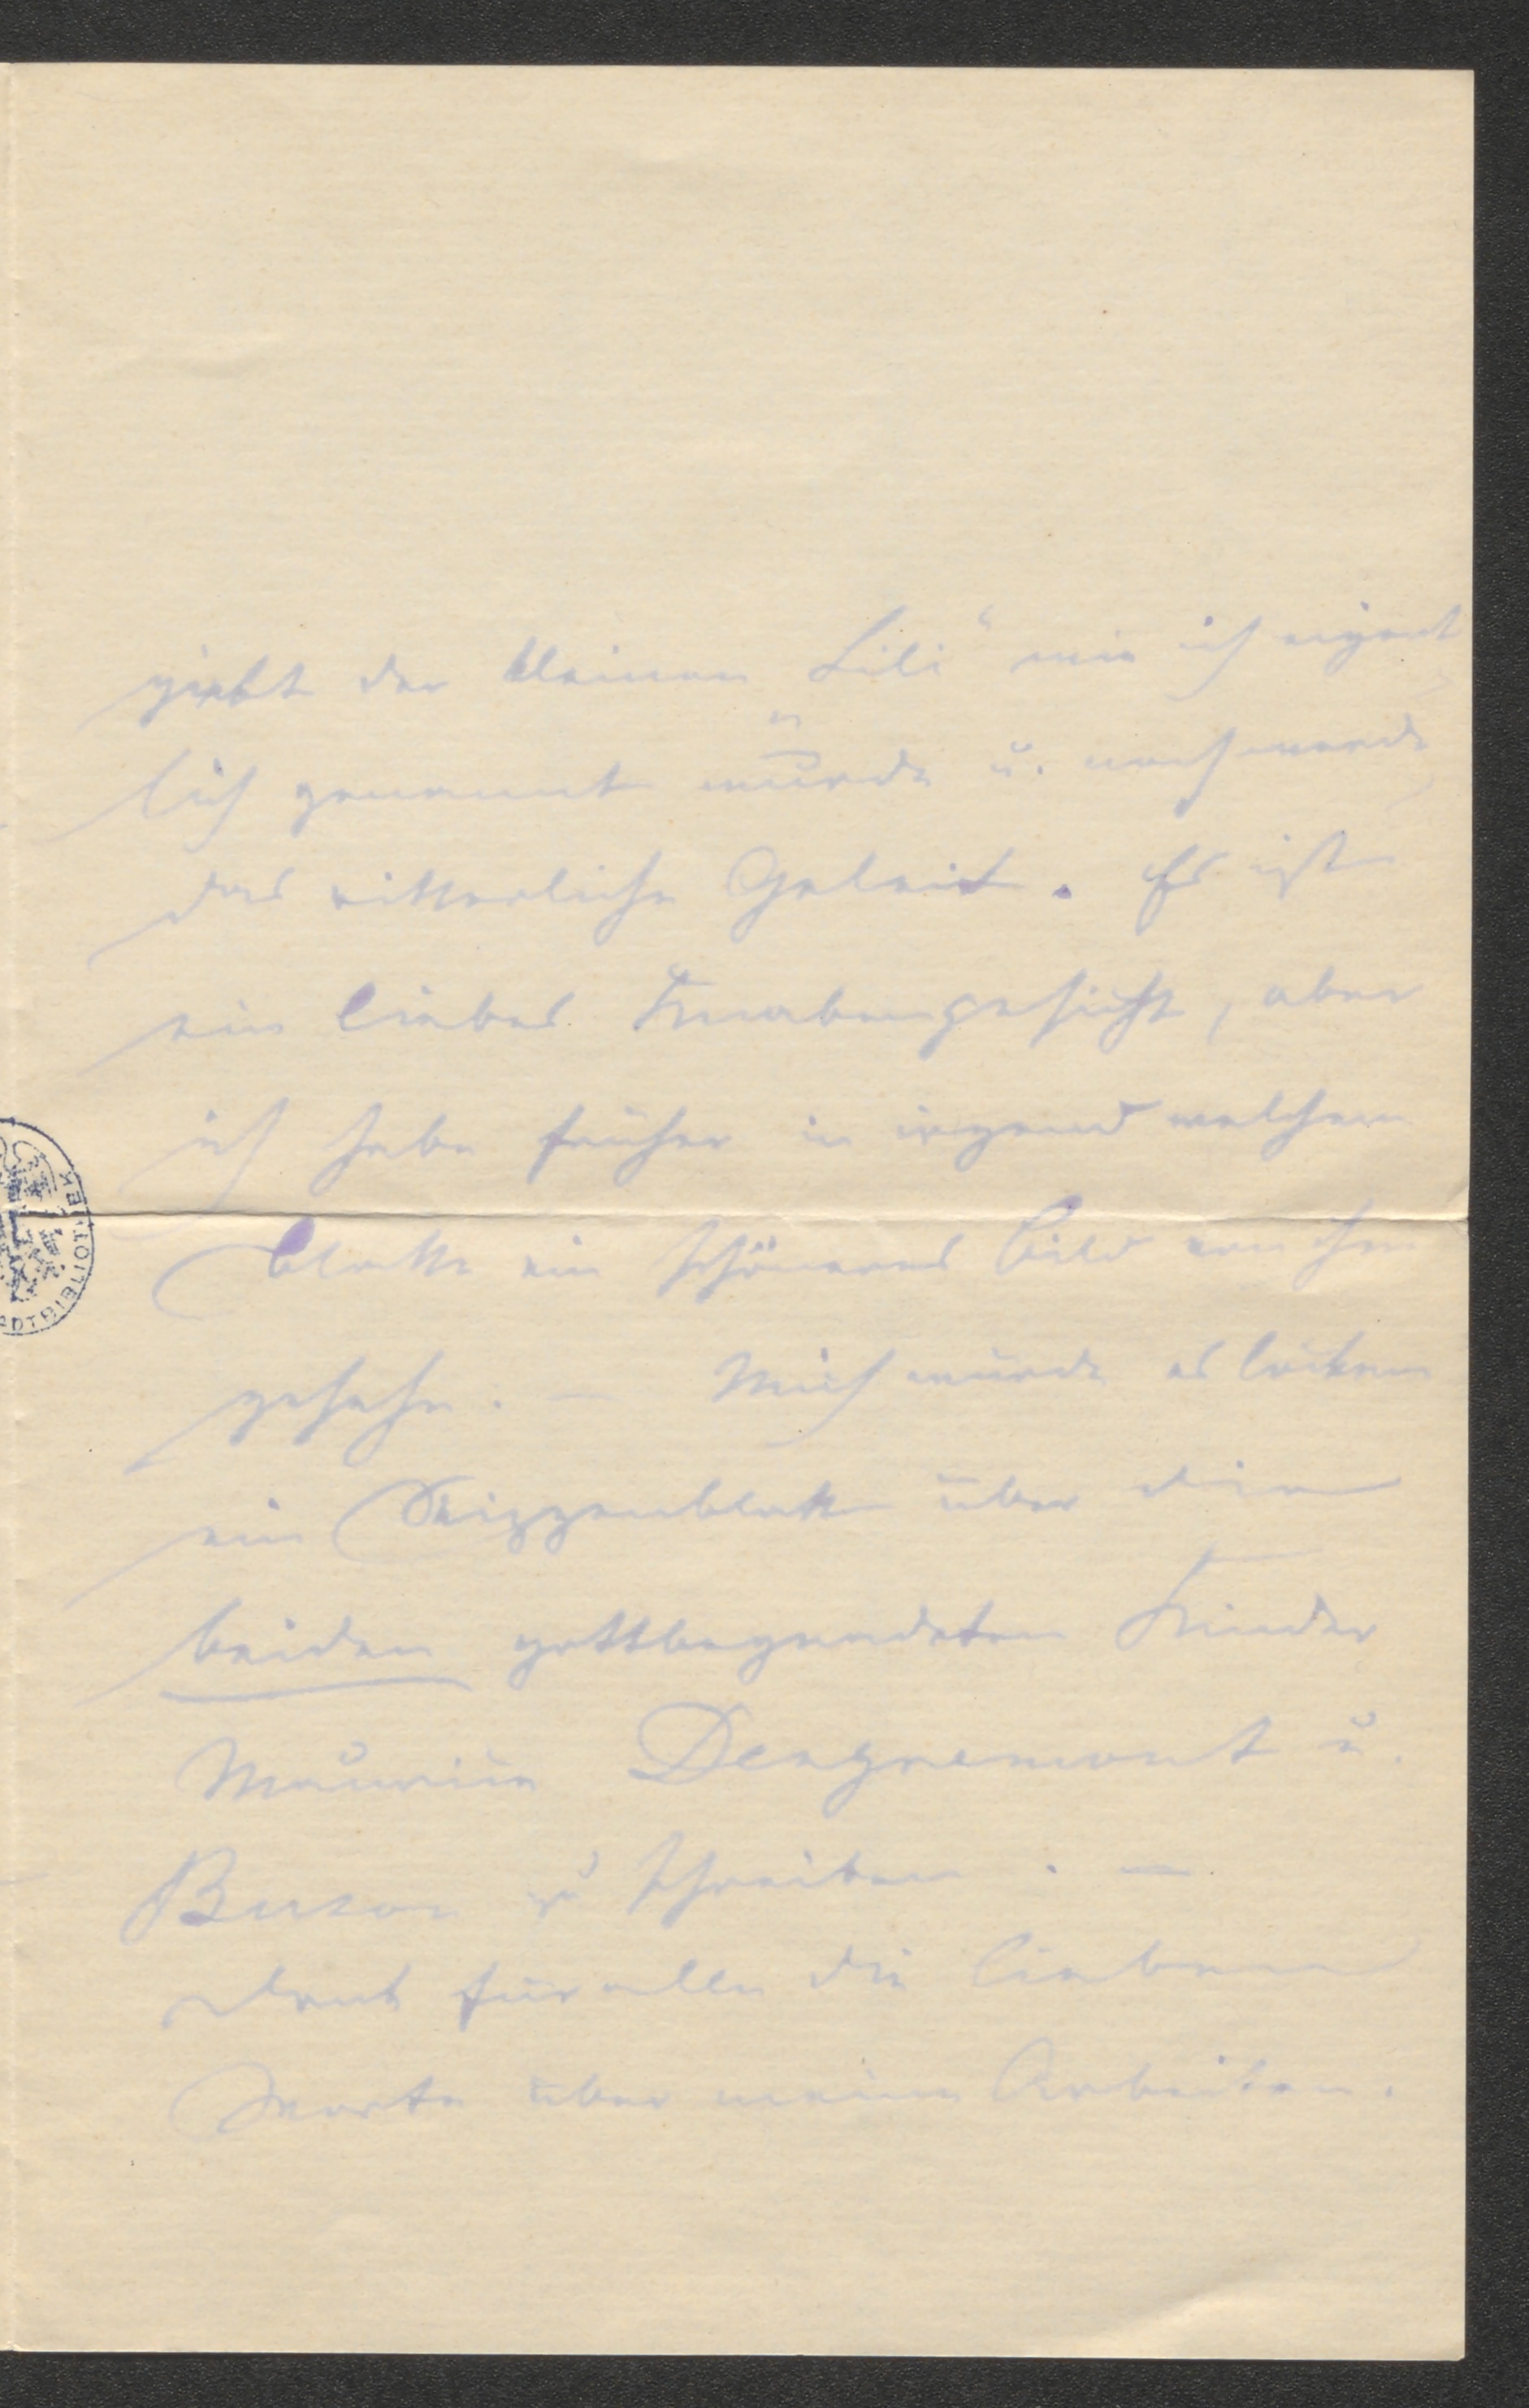 giebt der kleinen Lili" wie ich eigent
lich genannt wurde u. noch werde,
das ritterliche Geleit. Es ist
ein liebes Knabengesicht, aber
ich habe früher in irgend welchem
Blatte ein schöneres Bild von ihm
gesehn. — Mich würde es locken
ein Skizzenblatt über die
beiden gottbegnadeten Kinder
Maurice Dengremont u.
zu schreiben. —
Dank für alle die lieben
Worte über meine Arbeiten.